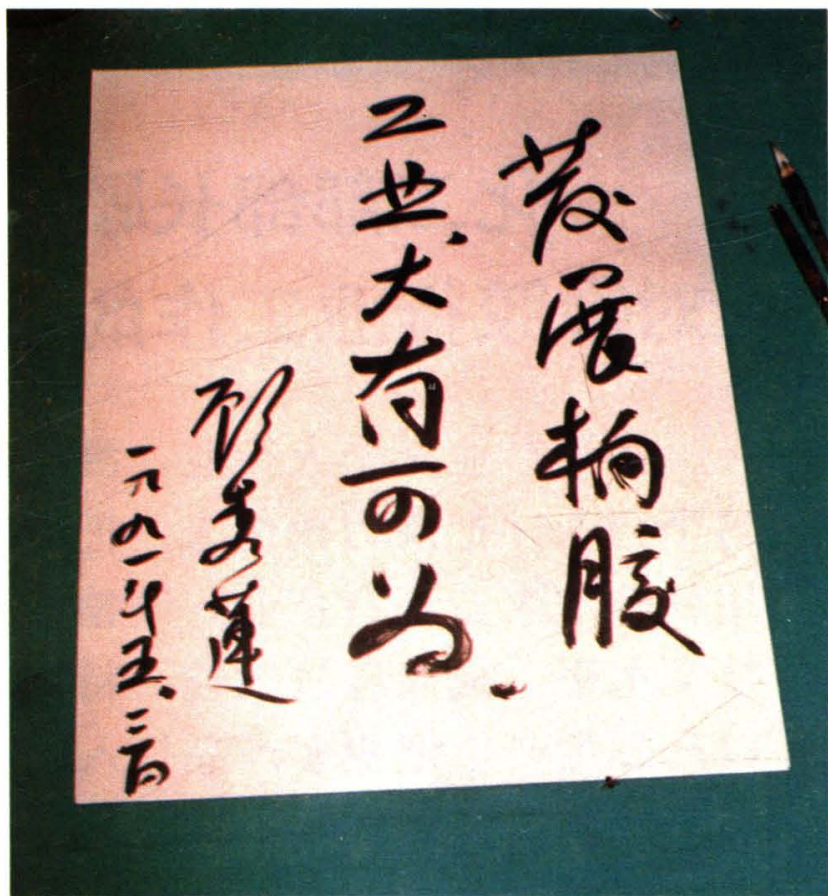 发展橡胶
工业、大有可为.
顾秀莲
一九九一年五、